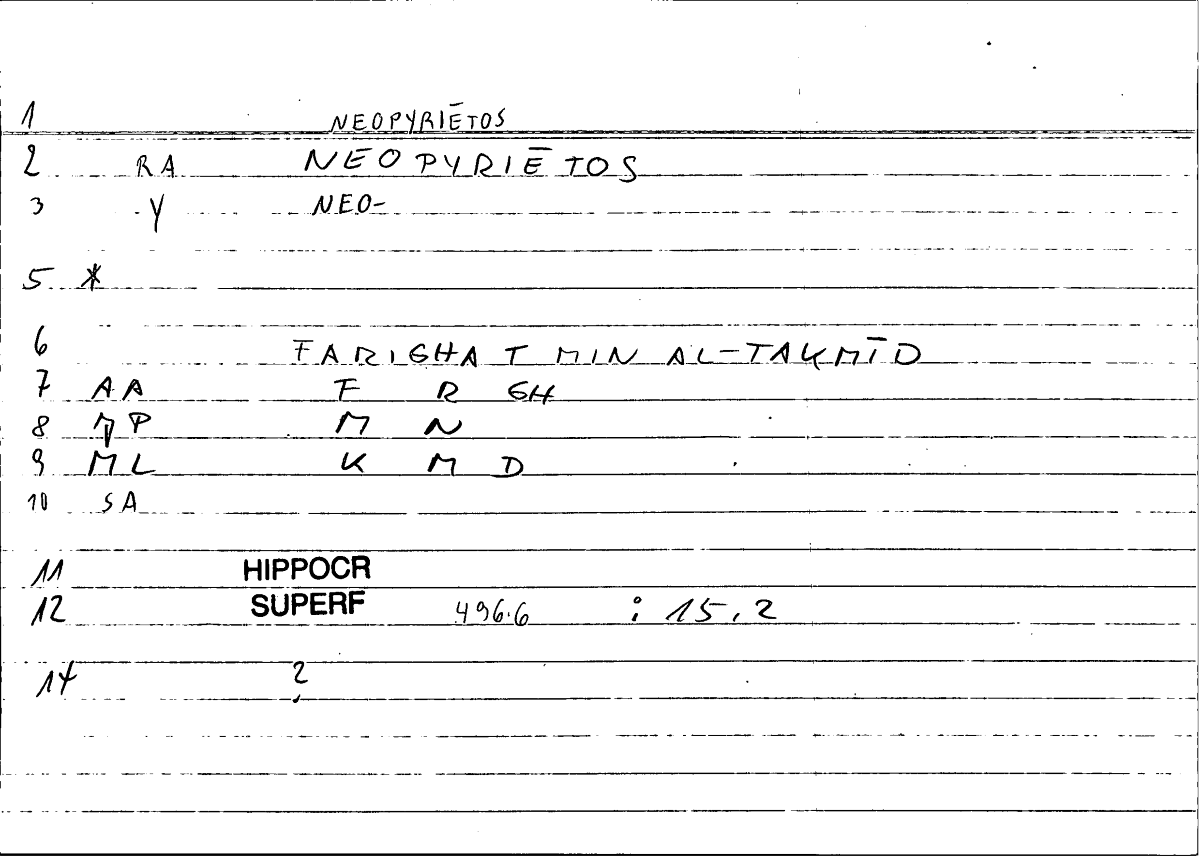 1 NEOPYRIĒTOS
2 RA NEOPYRIĒTOS
3 Y NEO-
5 *
6 FARIGHAT MIN AL-TAKMĪD
7 AA F R GH
8 MP M N
9 ML K M D
10 SA
11 HIPPOCR
12 SUPERF 496.6 : 15,2
14 ?